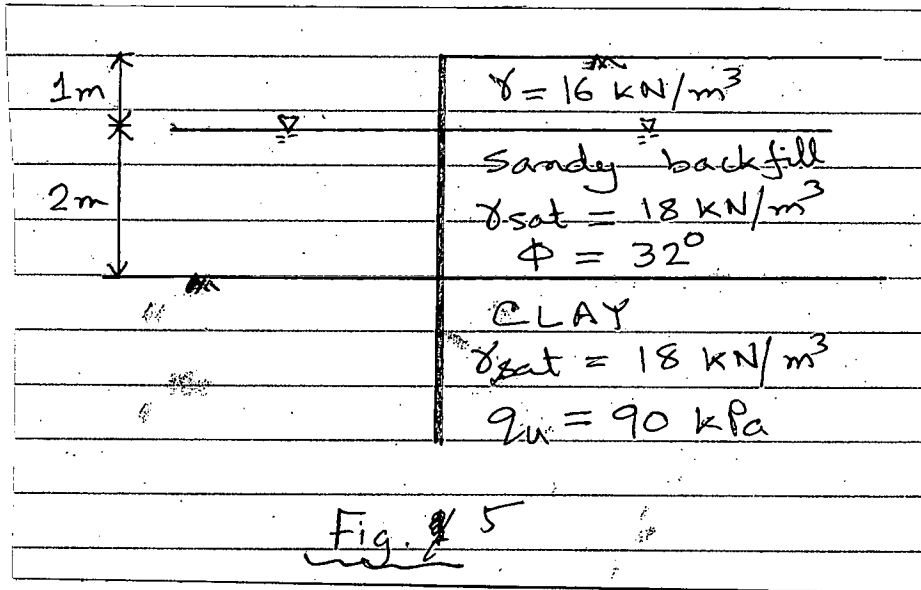 1m
γ = 16 KN/m³
Sandy backfill
2m
γsat = 18 KN/m³
Φ = 32°
CLAY
γsat = 18 KN/m³
qu = 90 kPa
Fig. 5